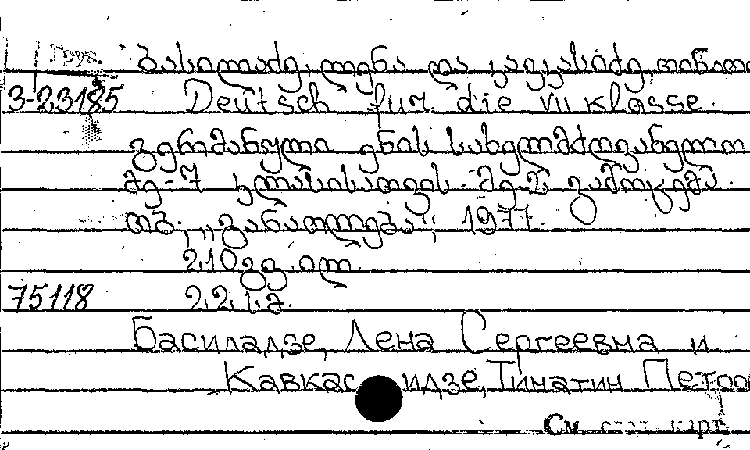 Груз.
ბასილაძე, ლენა და კავკასიძე, თინათი
3-23185 Deutsch fur die VII klasse.
გერმანული ენის სახელმძღვანელო
მე-7 კლასისათვის. მე-2 გამოცემა.
თბ., „განათლება", 1977.
210 გვ. ილ.
75118 22 კ.
Басиладзе, Лена Сергеевна и
Кавкасидзе, Тинатин Петро
См карт